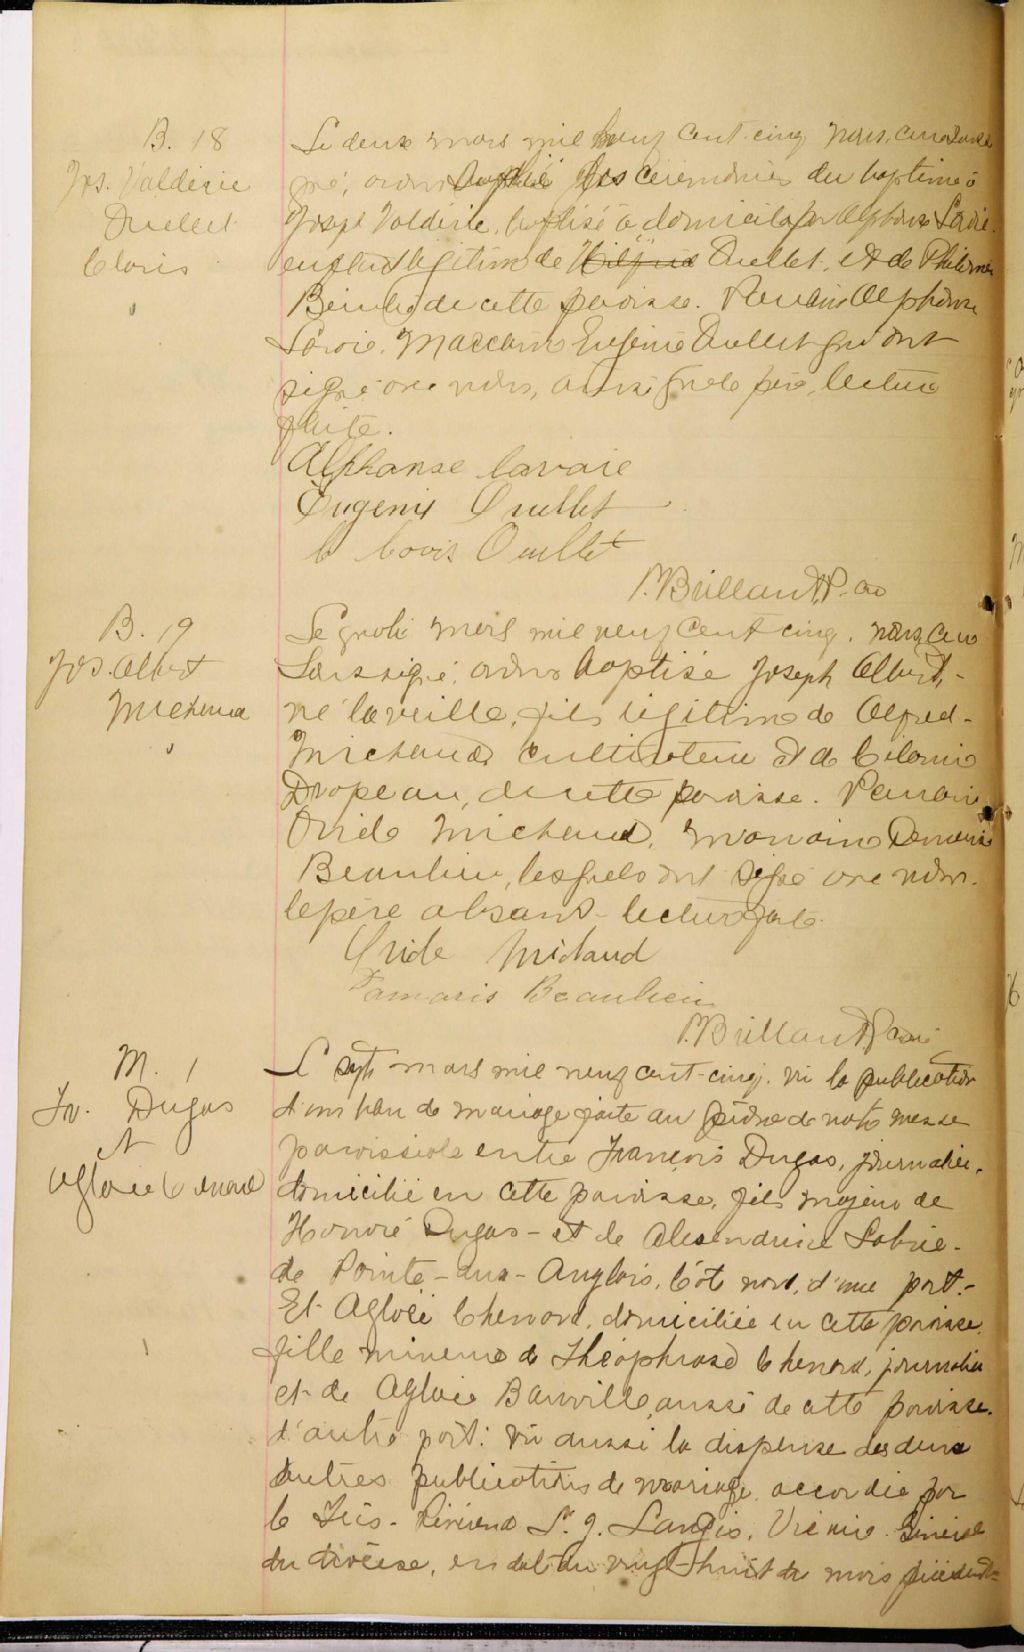 B. 18
Jos. Valdérie
Ouellet
Cloris
Le deux mars mil neuf cent cinq nous, curé sous-
gné, avons suppléé les cérémonies du baptême à
Joseph Valdérie, baptisé à domicile par Alphonse Lavoie.
enfant légitime de Ouellet, et de Philomène
de cette paroisse. Parrain Alphonse
Lavoie. Marraine Eugénie Ouellet qui ont
signé avec nous, ainsi que le père, lecture
faite.
Alphonse Lavoie
Eugenie Ouellet
Ouellet
P. Brillant, Ptr. curé
B. 19
Jos. Albert
Michaud
Le quatre mars mil neuf cent cinq, nous, curé
soussigné, avons baptisé Joseph Albert,
né la veille, fils légitime de Alfred
Michaud cultivateur et de
Drapeau, de cette paroisse. Parrain
Ovide Michaud, marraine Damaris
Beaulieu, lesquels ont signé avec nous.
le père absent - lecture faite
Ovide Michaud
Damaris Beaulieu
P. Brillant, Ptr. curé
M. 1
Frs. Dugas
et
Aglaée Chenard
Le sept mars mil neuf cent-cinq. vu la publication
d'un ban de mariage faite au prône de notre messe
paroissiale entre François Dugas, journalier,
domicilié en cette paroisse, fils majeur de
Honoré Dugas - et de Alexandrine Labrie -
de Pointe-aux-Anglais, Côte nord, d'une part. -
Et Aglaée Chenard, domiciliée en cette paroisse.
fille mineure de Théophrase Chenard, journalier
et de Aglaée Banville, aussi de cette paroisse.
d'autre part: vu aussi la dispense des deux
autres publications de mariage accordée par
le Très-Révérend L. J. Langis, Vicaire Général
du diocèse, en date du vingt-huit du mois précédent